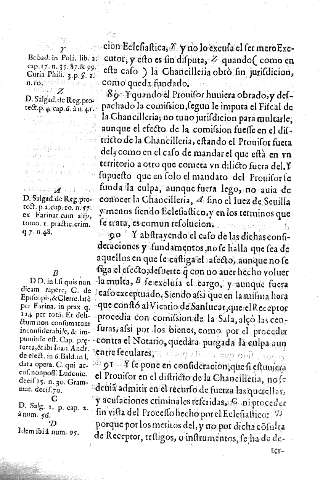 Y
Bobad. in Poli. lib. 2.
cap. 17. n. 35. 87. & 99.
Curia Phili. 3. p. §. 2.
n. 10.
Z
D. Salgad. de Reg. pro-
tect. p. 4. cap. 6. à n. 41.
A
D. Salgad. de Reg. pro-
tect. p. 2. cap. 10. n. 57.
ex Farinac. cum alijs,
tomo. 1. practic. crim.
q. 7. n. 48.
B
D D. in
Episcopis, & Cleric. latè
per Farin. in prax. q.
124. per tot. Et deli-
ctum non consummatum
C
D. Salg. 1. p. cap. 2.
à num. 56.
D
Idem ibi à num. 95.
cion Eclesiastica, Y y no lo excusa el ser mero Exe-
cutor, y esto es sin disputa, Z quando (como en
esta caso) la Chancilleria obrò sin jurisdicion,
como queda fundado.
89 Y quando el Prouisor huuiera obrado, y des-
pachado la comission, segun le imputa el Fiscal de
la Chancilleria; no tuuo jurisdicion para multarle,
aunque el efecto de la comission fuesse en el dis-
tricto de la Chancilleria, estando el Prouisor fuera
del; como en el caso de mandar el que està en vn
territorio a otro que cometa vn delicto fuera del. Y
supuesto que en solo el mandato del Prouisor se
funda la culpa, aunque fuera lego, no auia de
conocer la Chancilleria, A sino el Iuez de Seuilla
y mento siendo Eclesiastico, y en los terminos que
se trata, es comun resolucion.
90 Y abstrayendo el caso de las dichas consi-
deraciones y fundamentos, no se halla que sea de
aquellos en que se castiga el afecto, aunque no se
siga el efecto; desuerte que con no auer hecho voluer
la multa, B se excluia el cargo, y aunque fuera
caso exceptuado. Siendo assi que en la misma hora
que constò al Vicario de Sanlucar, que el Receptor
procedia con comission de la Sala, alçò las cen-
suras, assi por los bienes, como por el proceder
contra el Notario, quedàra purgada la culpa aun
entre seculares.
91 Y se pone en consideracion, que si estuuiera
el Prouisor en el districto de la Chancilleria, no se
deuia admitir en el recurso de fuerza las querellas,
y acusaciones criminales referidas, C ni proceder
sin vista del Processo hecho por el Eclesiastico: D
porque por los meritos del, y no por dicha consulta
de Receptor, testigos, o instrumentos, se ha de de-
ter-